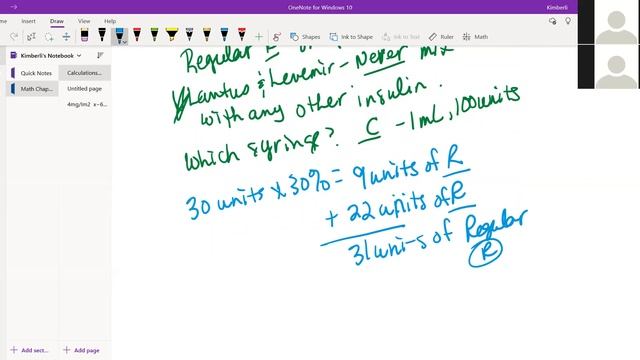 OneNote for Windows 10
Kimberli
Home Insert Draw View Help
Shapes Ink to Shape Ink to Text Ruler Math
Kimberli's Notebook
Quick Notes
Math Chap...
Calculations...
Untitled page
4mg/m2 x-6...
Regular
Lantus & Levemir - Never mix
with any other insulin.
Which syringe? C - 1mL, 100 units
30 units x 30% = 9 units of R
+ 22 units of R
31 uni-s of Regular
R
Add sect...
Add page